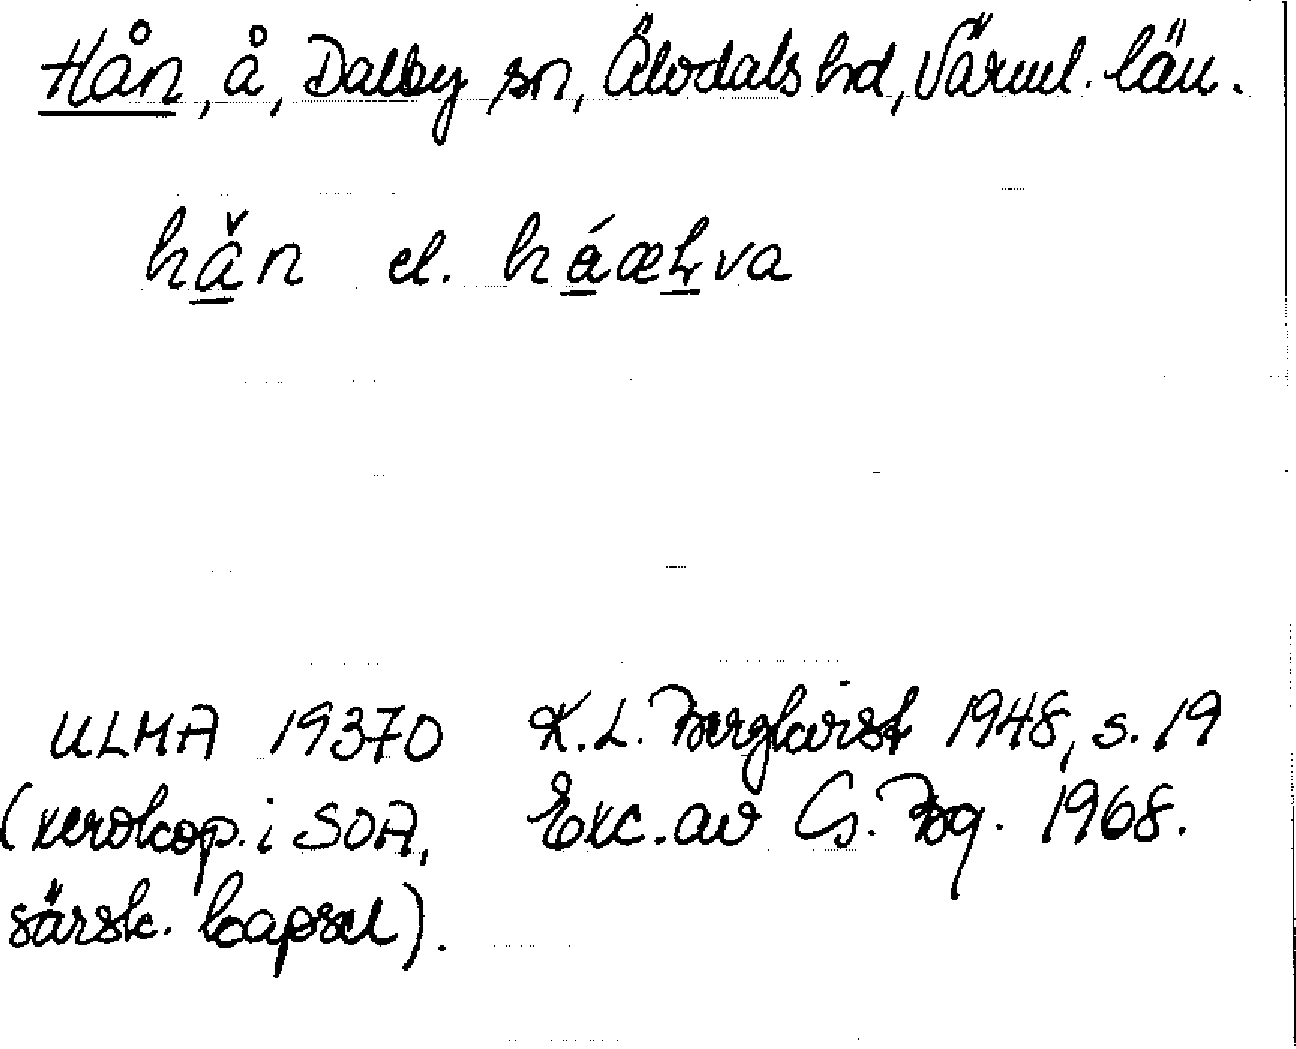 Hån, å, Dalby sn, Älvdals hd, Värml. län.
hå̌n el. hǻæḷva
ULMA 19370 K.L. Bergkvist 1948, s. 19
(xerokop. i SOA, Exc. av G. Bg. 1968.
särsk. kapsel).